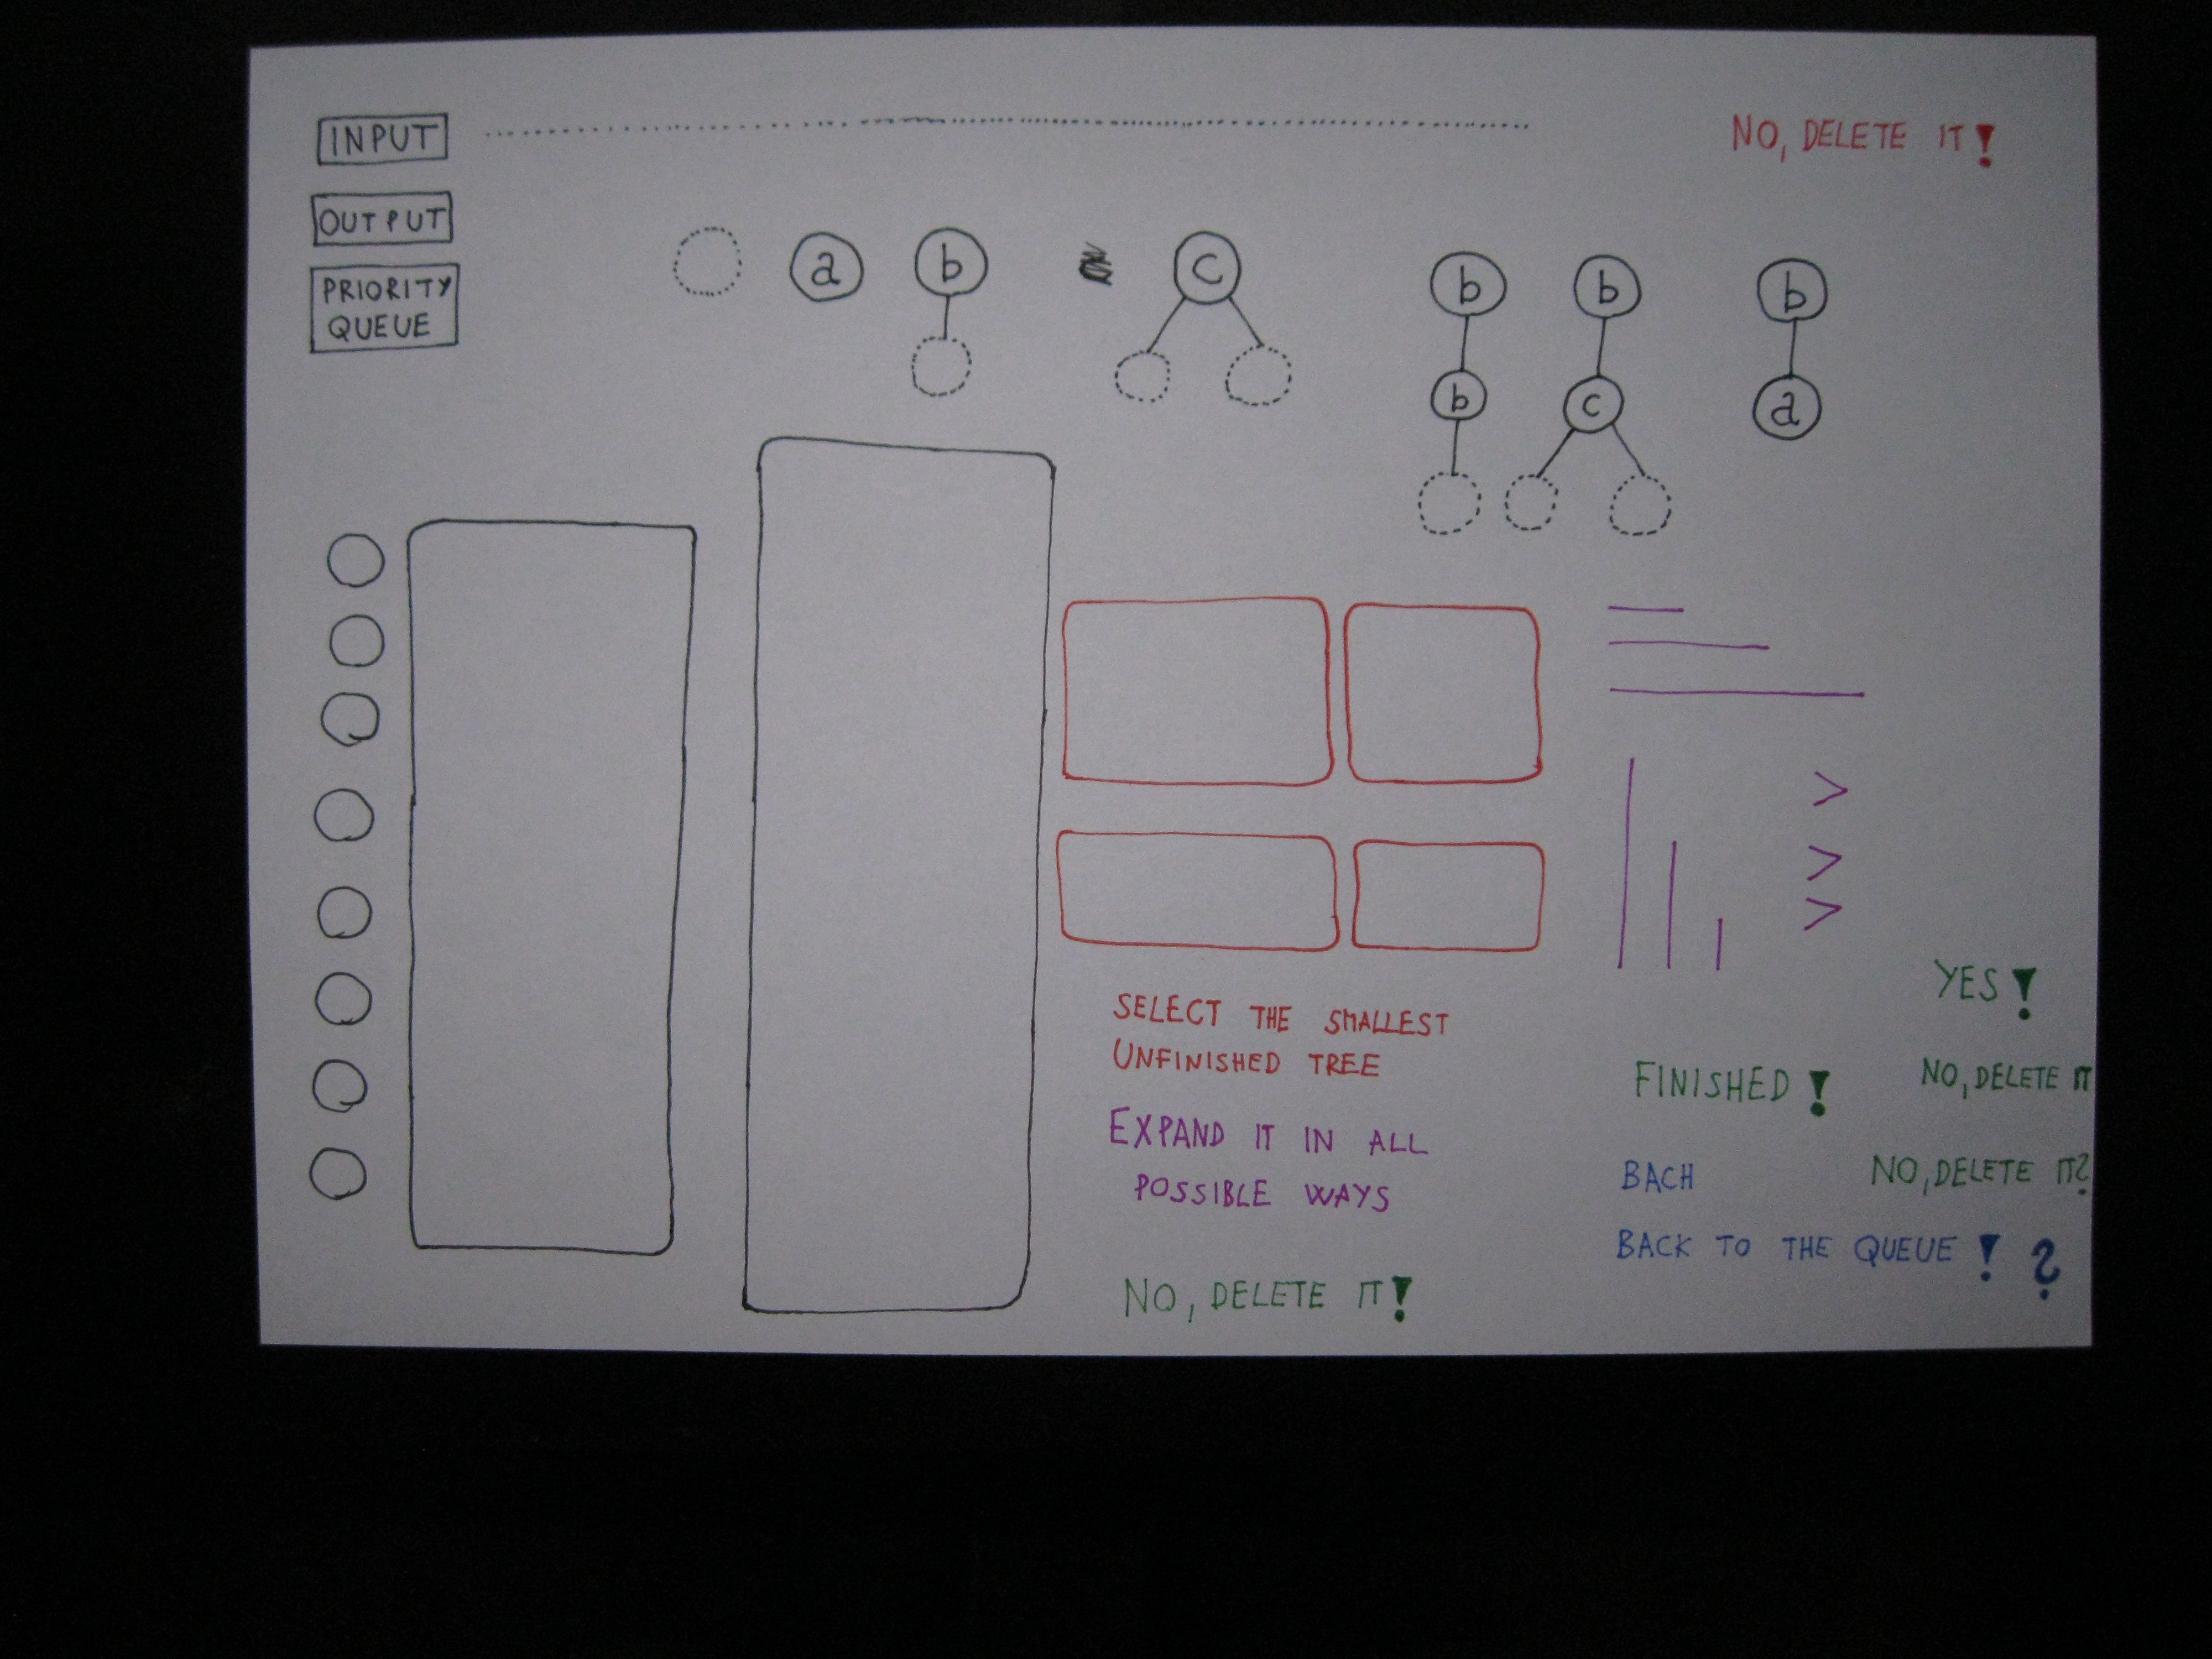 INPUT
NO, DELETE IT!
OUTPUT
PRIORITY
QUEUE
a
b
c
b
b
b
b
c
a
>
>
>
SELECT THE SMALLEST
UNFINISHED TREE
EXPAND IT IN ALL
POSSIBLE WAYS
NO, DELETE IT!
YES!
FINISHED!
NO, DELETE IT
BACH
NO, DELETE IT?
BACK TO THE QUEUE ! ?